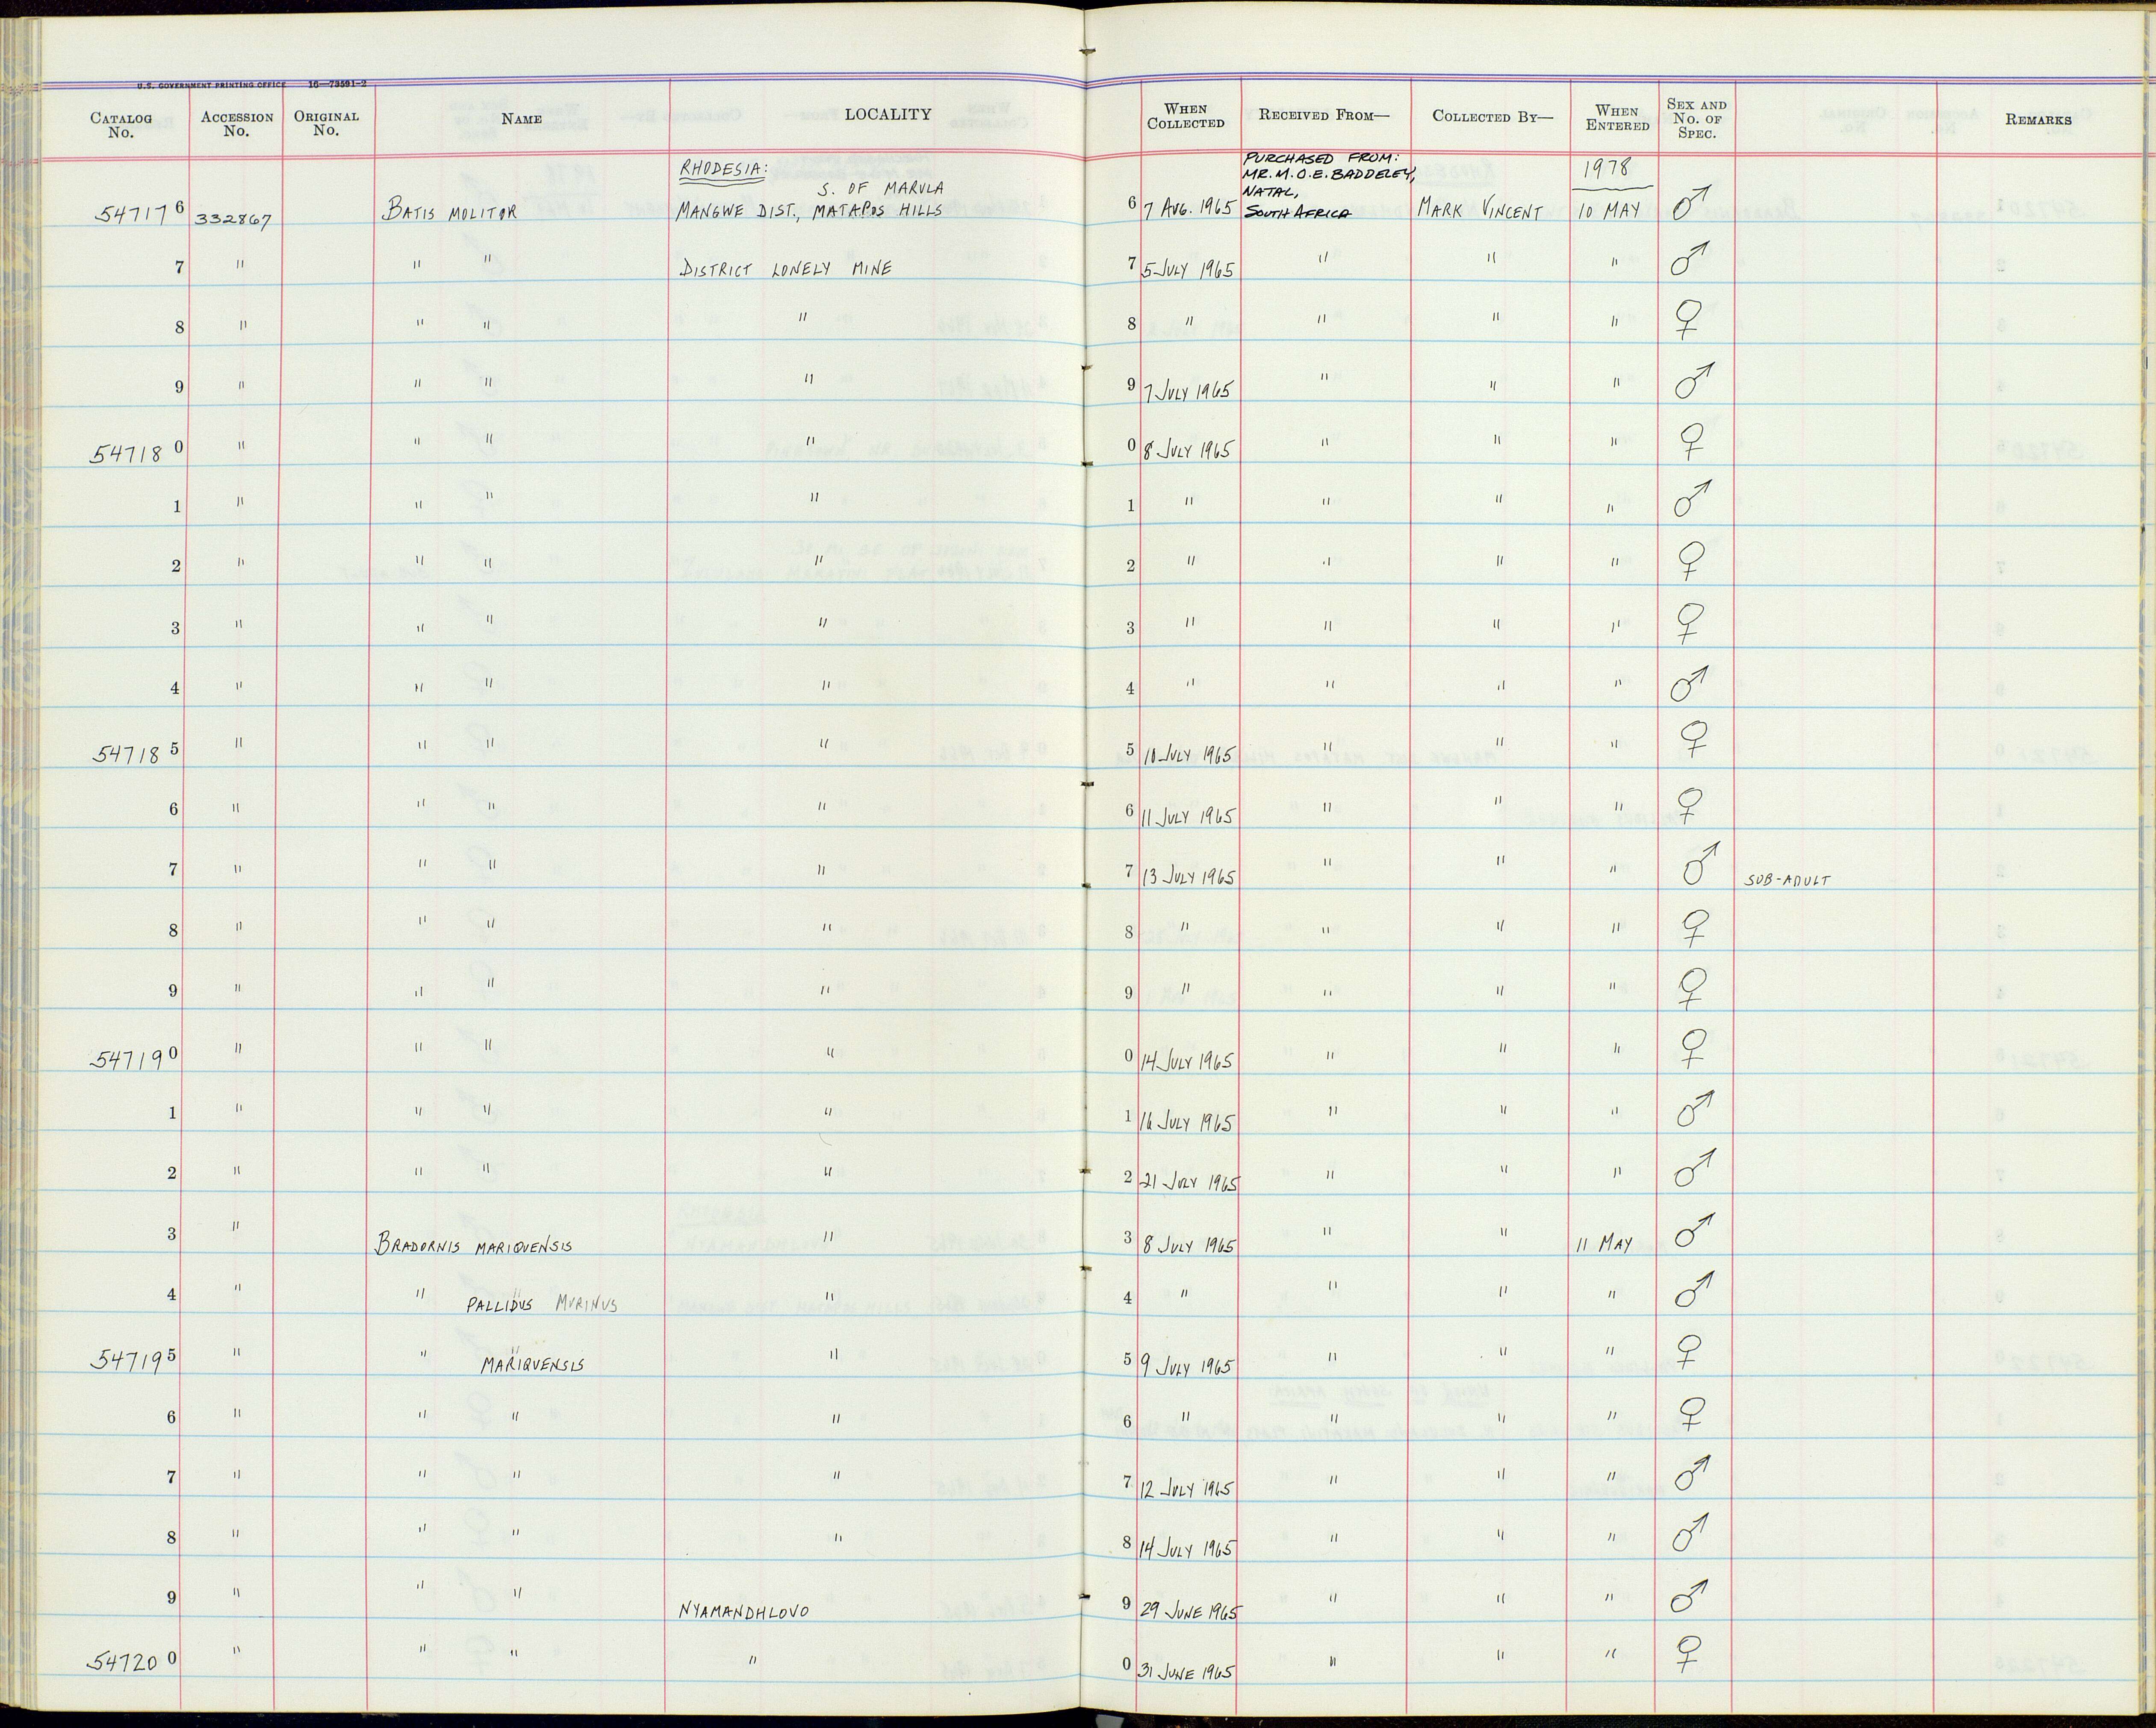 U.S. GOVERNMENT PRINTING OFFICE 16—73591-2
CATALOG No. ACCESSION No. ORIGINAL No. NAME LOCALITY WHEN COLLECTED RECEIVED FROM— COLLECTED BY— WHEN ENTERED SEX AND No. OF SPEC. REMARKS
RHODESIA: PURCHASED FROM: 1978
S. OF MARULA MR. M.O.E. BADDELEY, NATAL,
547176 332867 BATIS MOLITOR MANGWE DIST., MATAPOS HILLS 6 7 AUG. 1965 SOUTH AFRICA MARK VINCENT 10 MAY ♂
7 " " " DISTRICT LONELY MINE 7 5 JULY 1965 " " " ♂
8 " " " " 8 " " " " ♀
9 " " " " 9 7 JULY 1965 " " " ♂
547180 " " " " 0 8 JULY 1965 " " " ♀
1 " " " " 1 " " " " ♂
2 " " " " 2 " " " " ♀
3 " " " " 3 " " " " ♀
4 " " " " 4 " " " " ♂
547185 " " " " 5 10 JULY 1965 " " " ♀
6 " " " " 6 11 JULY 1965 " " " ♀
7 " " " " 7 13 JULY 1965 " " " ♂ SUB-ADULT
8 " " " " 8 " " " " ♀
9 " " " " 9 " " " " ♀
547190 " " " " 0 14 JULY 1965 " " " ♀
1 " " " " 1 16 JULY 1965 " " " ♂
2 " " " " 2 21 JULY 1965 " " " ♂
3 " BRADORNIS MARIQUENSIS " 3 8 JULY 1965 " " 11 MAY ♂
4 " " PALLIDUS MURINUS " 4 " " " " ♂
547195 " " MARIQUENSIS " 5 9 JULY 1965 " " " ♀
6 " " " " 6 " " " " ♀
7 " " " " 7 12 JULY 1965 " " " ♂
8 " " " " 8 14 JULY 1965 " " " ♂
9 " " " NYAMANDHLOVO 9 29 JUNE 1965 " " " ♂
547200 " " " " 0 31 JUNE 1965 " " " ♀